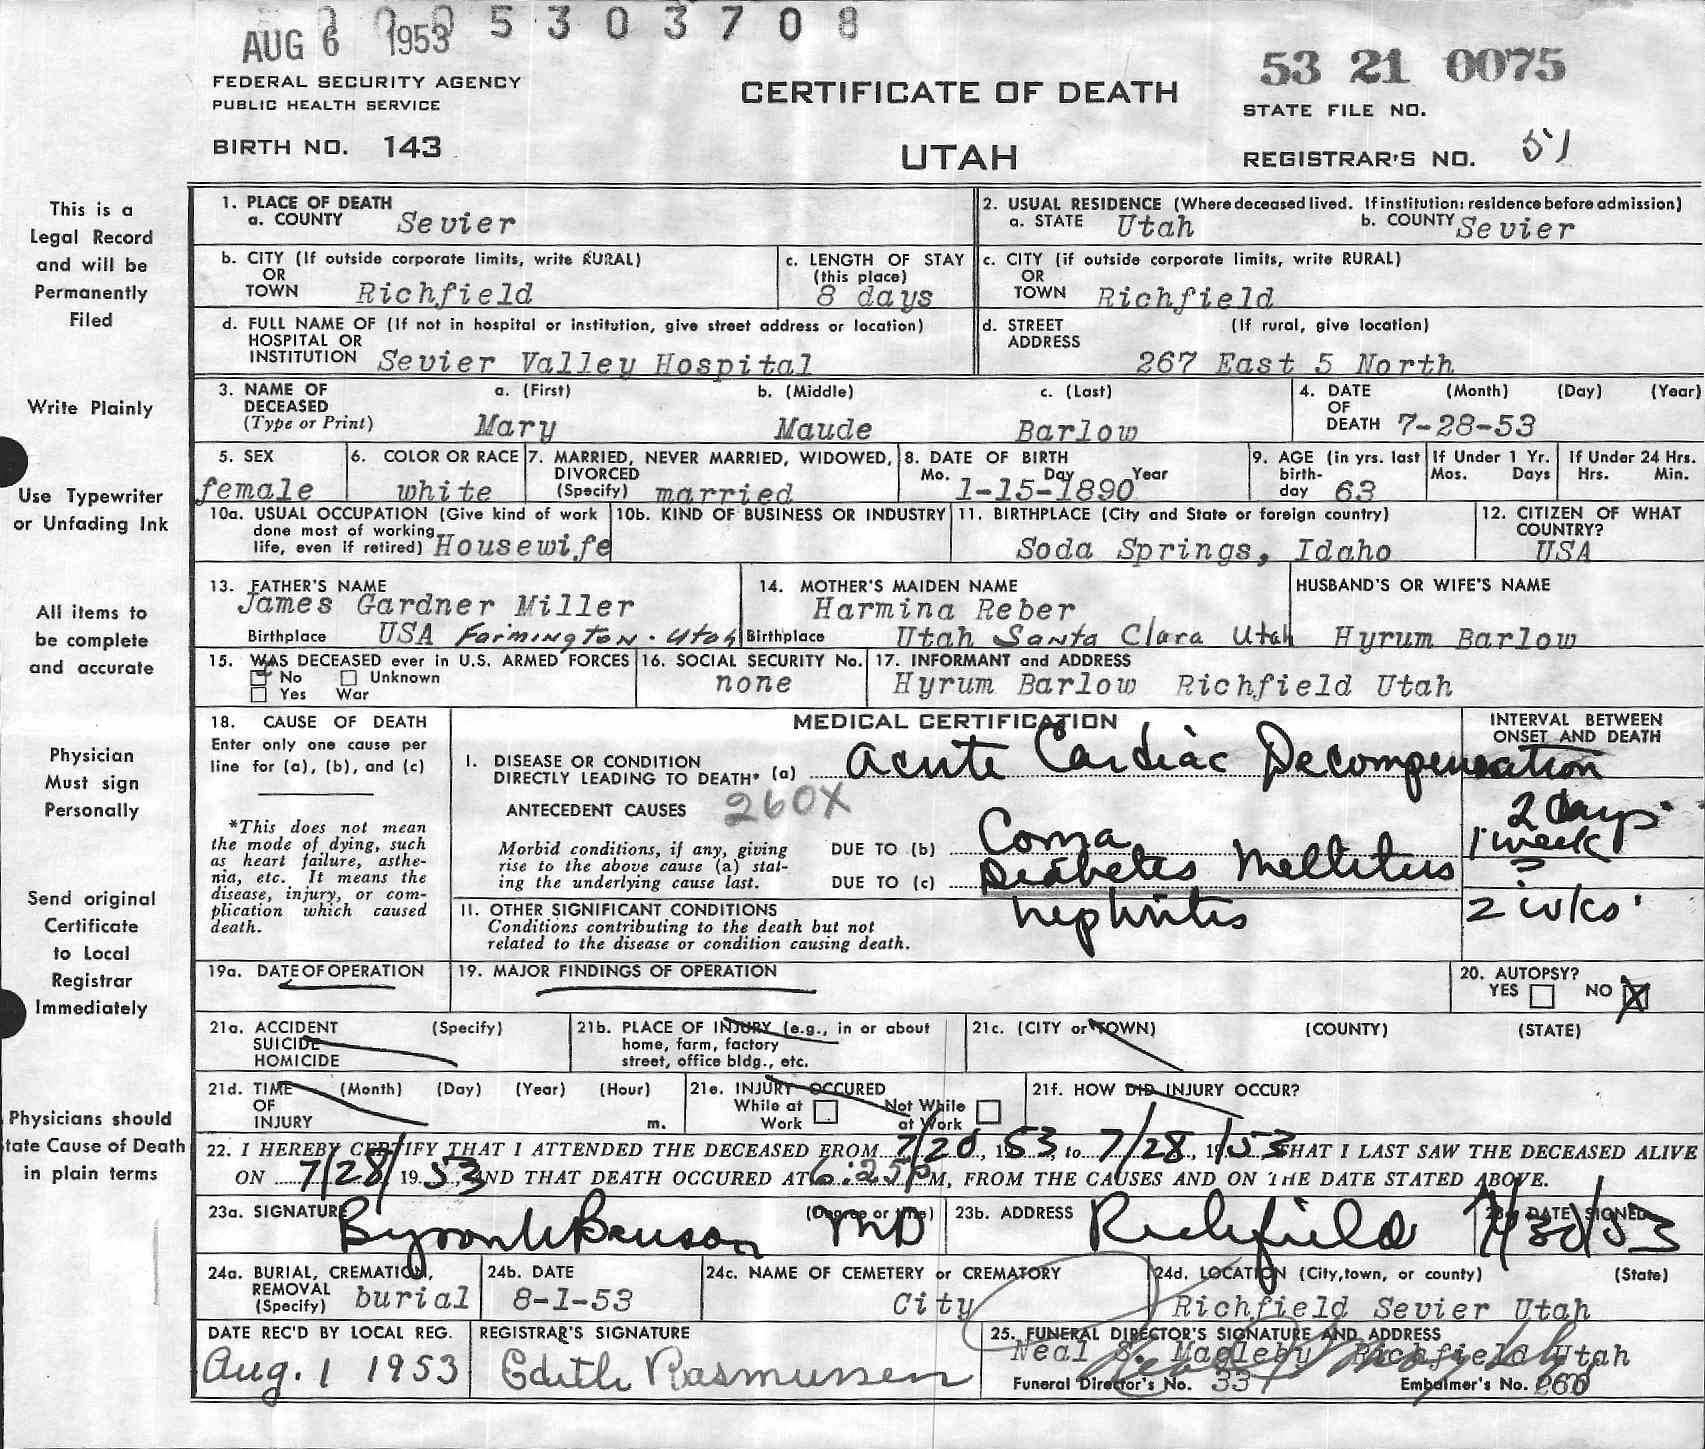 AUG 6 1953 5 3 0 3 7 0 8
53 21 0075
FEDERAL SECURITY AGENCY
PUBLIC HEALTH SERVICE
CERTIFICATE OF DEATH
STATE FILE NO.
BIRTH NO. 143
UTAH
REGISTRAR'S NO. 51
This is a
Legal Record
and will be
Permanently
Filed
Write Plainly
Use Typewriter
or Unfading Ink
All items to
be complete
and accurate
Physician
Must sign
Personally
Send original
Certificate
to Local
Registrar
Immediately
Physicians should
tate Cause of Death
in plain terms
1. PLACE OF DEATH
a. COUNTY Sevier
2. USUAL RESIDENCE (Where deceased lived. If institution: residence before admission)
a. STATE Utah b. COUNTY Sevier
b. CITY (If outside corporate limits, write RURAL)
OR
TOWN Richfield
c. LENGTH OF STAY
(this place)
8 days
c. CITY (if outside corporate limits, write RURAL)
OR
TOWN Richfield
d. FULL NAME OF (If not in hospital or institution, give street address or location)
HOSPITAL OR
INSTITUTION Sevier Valley Hospital
d. STREET (If rural, give location)
ADDRESS
267 East 5 North
3. NAME OF a. (First) b. (Middle) c. (Last)
DECEASED
(Type or Print) Mary Maude Barlow
4. DATE (Month) (Day) (Year)
OF
DEATH 7-28-53
5. SEX
female
6. COLOR OR RACE
white
7. MARRIED, NEVER MARRIED, WIDOWED,
DIVORCED
(Specify) married
8. DATE OF BIRTH
Mo. Day Year
1-15-1890
9. AGE (in yrs. last
birth-
day 63
If Under 1 Yr.
Mos. Days
If Under 24 Hrs.
Hrs. Min.
10a. USUAL OCCUPATION (Give kind of work
done most of working
life, even if retired) Housewife
10b. KIND OF BUSINESS OR INDUSTRY
11. BIRTHPLACE (City and State or foreign country)
Soda Springs, Idaho
12. CITIZEN OF WHAT
COUNTRY?
USA
13. FATHER'S NAME
James Gardner Miller
Birthplace USA Farmington. Utah
14. MOTHER'S MAIDEN NAME
Harmina Reber
Birthplace Utah Santa Clara Utah
HUSBAND'S OR WIFE'S NAME
Hyrum Barlow
15. WAS DECEASED ever in U.S. ARMED FORCES
No Unknown
Yes War
16. SOCIAL SECURITY No.
none
17. INFORMANT and ADDRESS
Hyrum Barlow Richfield Utah
18. CAUSE OF DEATH
Enter only one cause per
line for (a), (b), and (c)
*This does not mean
the mode of dying, such
as heart failure, asthe-
nia, etc. It means the
disease, injury, or com-
plication which caused
death.
MEDICAL CERTIFICATION
INTERVAL BETWEEN
ONSET AND DEATH
I. DISEASE OR CONDITION
DIRECTLY LEADING TO DEATH* (a) Acute Cardiac Decompensation
2 days
ANTECEDENT CAUSES 260X
Morbid conditions, if any, giving
rise to the above cause (a) stat-
ing the underlying cause last.
DUE TO (b) Coma 1 week
DUE TO (c) Diabetes Mellitus ?
II. OTHER SIGNIFICANT CONDITIONS
Conditions contributing to the death but not
related to the disease or condition causing death.
Nephritis 2 wks.
19a. DATE OF OPERATION
19. MAJOR FINDINGS OF OPERATION
20. AUTOPSY?
YES NO X
21a. ACCIDENT (Specify)
SUICIDE
HOMICIDE
21b. PLACE OF INJURY (e.g., in or about
home, farm, factory
street, office bldg., etc.
21c. (CITY or TOWN) (COUNTY) (STATE)
21d. TIME (Month) (Day) (Year) (Hour)
OF
INJURY m.
21e. INJURY OCCURED
While at Work Not While at Work
21f. HOW DID INJURY OCCUR?
22. I HEREBY CERTIFY THAT I ATTENDED THE DECEASED FROM 7/20, 1953, to 7/28, 1953 THAT I LAST SAW THE DECEASED ALIVE
ON 7/28 1953, AND THAT DEATH OCCURED AT 6:25 P M, FROM THE CAUSES AND ON THE DATE STATED ABOVE.
23a. SIGNATURE (Degree or title) Byron W Benson MD
23b. ADDRESS Richfield
23c. DATE SIGNED 7/30/53
24a. BURIAL, CREMATION,
REMOVAL
(Specify) burial
24b. DATE
8-1-53
24c. NAME OF CEMETERY or CREMATORY
City
24d. LOCATION (City, town, or county) (State)
Richfield Sevier Utah
DATE REC'D BY LOCAL REG.
Aug. 1 1953
REGISTRAR'S SIGNATURE
Edith Rasmussen
25. FUNERAL DIRECTOR'S SIGNATURE AND ADDRESS
Neal S. Magleby Richfield Utah
Funeral Director's No. 337 Embalmer's No. 266